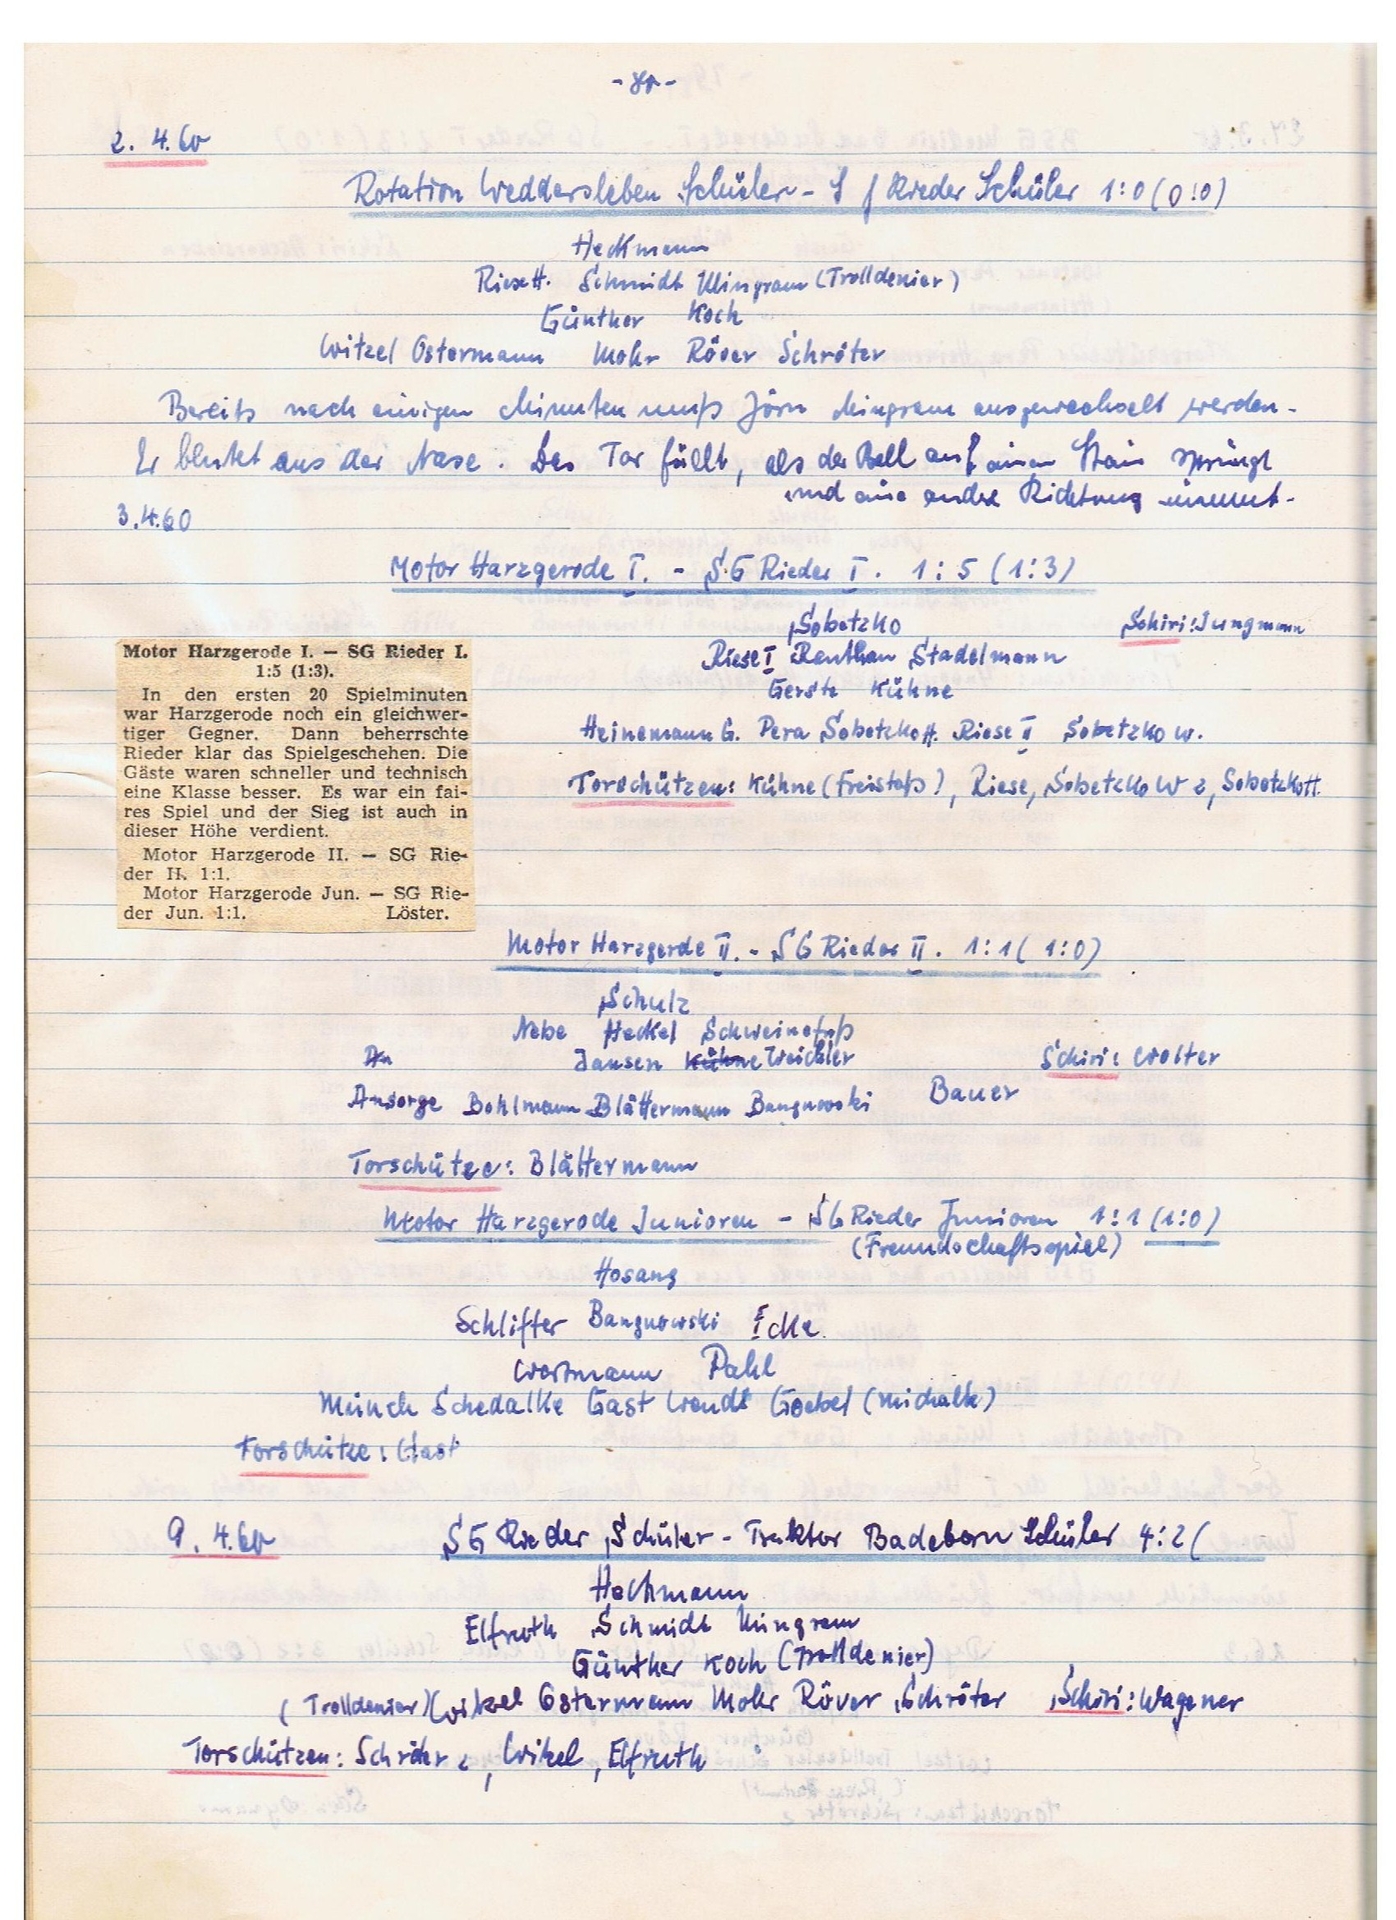 - 80 -
2. 4. 60
Rotation Weddersleben Schüler - SG Rieder Schüler 1:0 (0:0)
Heckmann
Riese H. Schmidt Mingram (Trolldenier)
Günther Koch
Witzel Ostermann Mohr Röver Schröter
Bereits nach einigen Minuten muß Jörn Mingram ausgewechselt werden.
Er blutet aus der Nase. Das Tor fällt, als der Ball auf einen Stein springt
und eine andre Richtung nimmt.
3.4.60
Motor Harzgerode I. - S.G Rieder I. 1:5 (1:3)
Sobotzko Schiri: Jungmann
Riese I Stadelmann
Gersth Kühne
Heinemann G. Pera Sobotzko H. Riese II Sobotzko W.
Torschützen: Kühne (Freistoß), Riese, Sobotzko W 2, Sobotzko H.
Motor Harzgerode I. — SG Rieder I.
1:5 (1:3).
In den ersten 20 Spielminuten
war Harzgerode noch ein gleichwer-
tiger Gegner. Dann beherrschte
Rieder klar das Spielgeschehen. Die
Gäste waren schneller und technisch
eine Klasse besser. Es war ein fai-
res Spiel und der Sieg ist auch in
dieser Höhe verdient.
Motor Harzgerode II. — SG Rie-
der II. 1:1.
Motor Harzgerode Jun. — SG Rie-
der Jun. 1:1. Löster.
Motor Harzgerde II. - SG Rieder II. 1:1 (1:0)
Schulz
Nebe Heckel Schweinefuß
An Jansen Kühne Weichler Schiri: Wolter
Ansorge Bohlmann Blättermann Bangnowski Bauer
Torschütze: Blättermann
Motor Harzgerode Junioren - SG Rieder Junioren 1:1 (1:0)
(Freundschaftsspiel)
Hosang
Schliffer Bangnowski Icke
Wortmann Pahl
Münch Schedalke Gast Wendt Goebel (Michalk)
Torschütze: Gast
9. 4. 60 SG Rieder Schüler - Traktor Badeborn Schüler 4:2 (
Heckmann
Elfruth Schmidt Mingram
Günther Koch (Trolldenier)
(Trolldenier) Witzel Ostermann Mohr Röver Schröter Schiri: Wagener
Torschützen: Schröter 2, Witzel, Elfruth